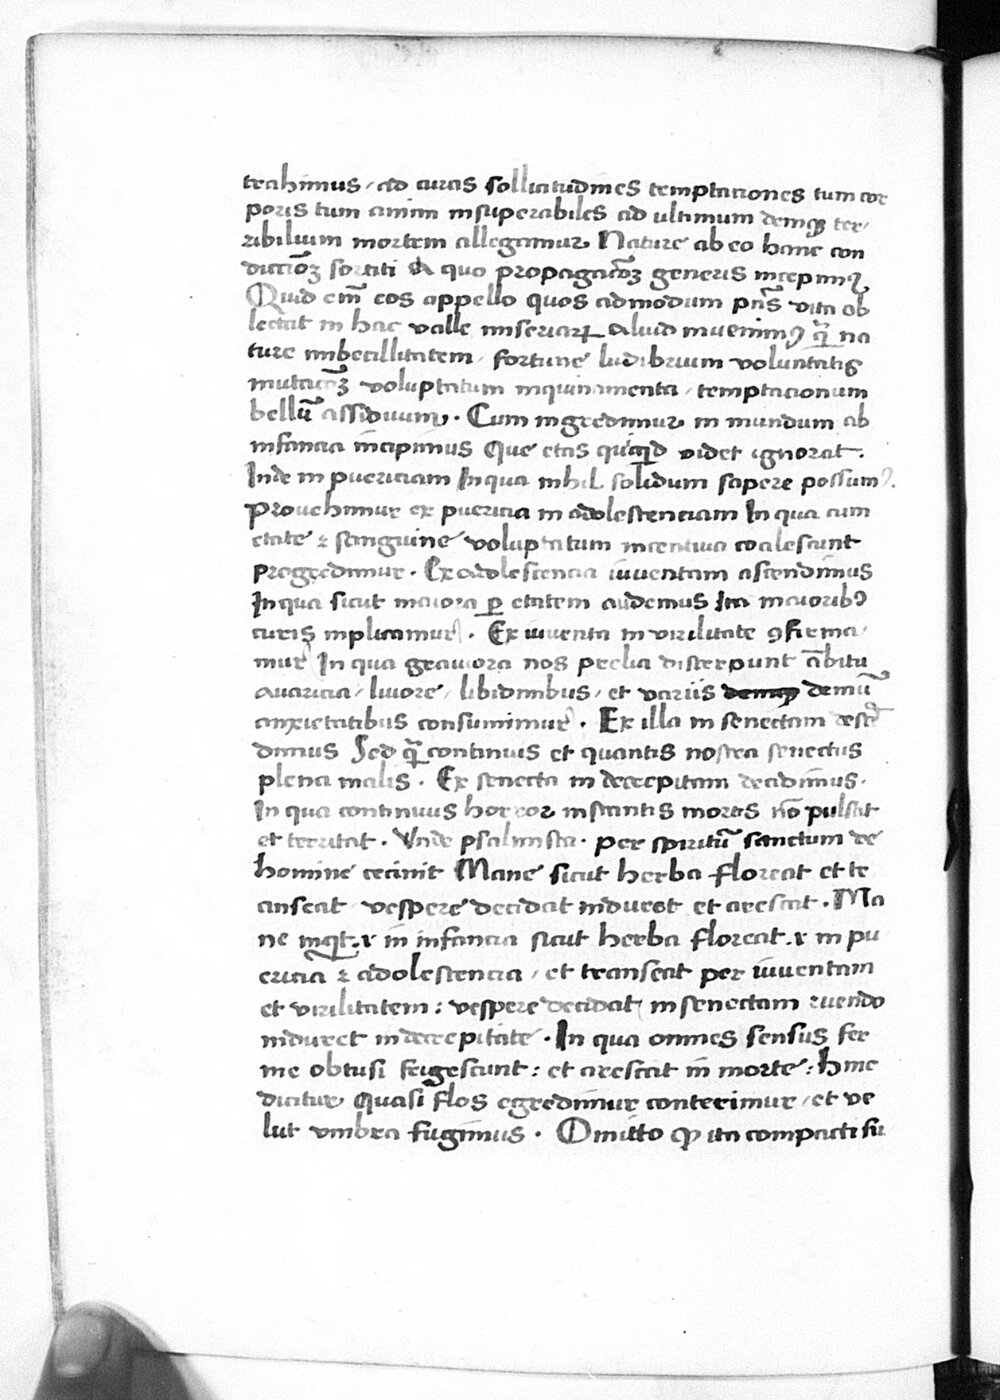 trahimus, ad curas sollicitudines temptationes tum cor
poris tum animi insuperabiles ad ultimum demq; ter,
ribilium mortem allegamur Nature ab eo hanc con
dictiõꝫ sortiti A quo propagacõꝫ generis incepimꝰ
Quid em̃ eos appello quos admodum pñs vita ob
lectat in hac valle miseriaꝝ Aliud invenimꝰ qᷓ na
ture imbecillitatem, fortune ludibrium voluntatis
mutacõꝫ voluptatum inquinamenta, temptacionum
bellũ assiduum. Cum ingredimur in mundum ab
infancia incipimus Que etas quicqd videt ignorat.
Inde in puericiam In qua nihil solidum sapere possumꝰ.
Provehimur ex puericia in adolescenciam In qua cum
etate ⁊ sanguine voluptatum incentiva coalescunt
Progredimur. Ex adolescencia iuventam ascendimus
In qua sicut maiora ꝑ etatem audemus Ita maioribꝰ
curis inplicamur. Ex iuventa in virilitate ꝯfirma,
mur In qua graviora nos prelia discerpunt ãbitu
avaricia, livore, libidinibus, et variis demũ
anxietatibus consumimur. Ex illa in senectam desc̃
dimus Sed qᷓ continuis et quantis nostra senectus
plena malis. Ex senecta in decrepitam decidimus.
In qua continuus horror instantis mortis nõ pulsat
et territat. Unde psalmista. per spiritũ sanctum de
homine cecinit Mane sicut herba floreat et tr
anseat vespere decidat induret et arescat. Ma
ne inqt. r in infancia sicut herba floreat. r in pu
ericia ⁊ adolescencia, et transeat per iuventam
et virilitatem: vespere decidat in senectam ruendo
induret in decrepitate. In qua omnes sensus fer
me obtusi frigescunt: et arescat in morte: hinc
dicitur Quasi flos egredimur conterimur, et ve
lut umbra fugimus. Omitto ꝙ ita compacti su